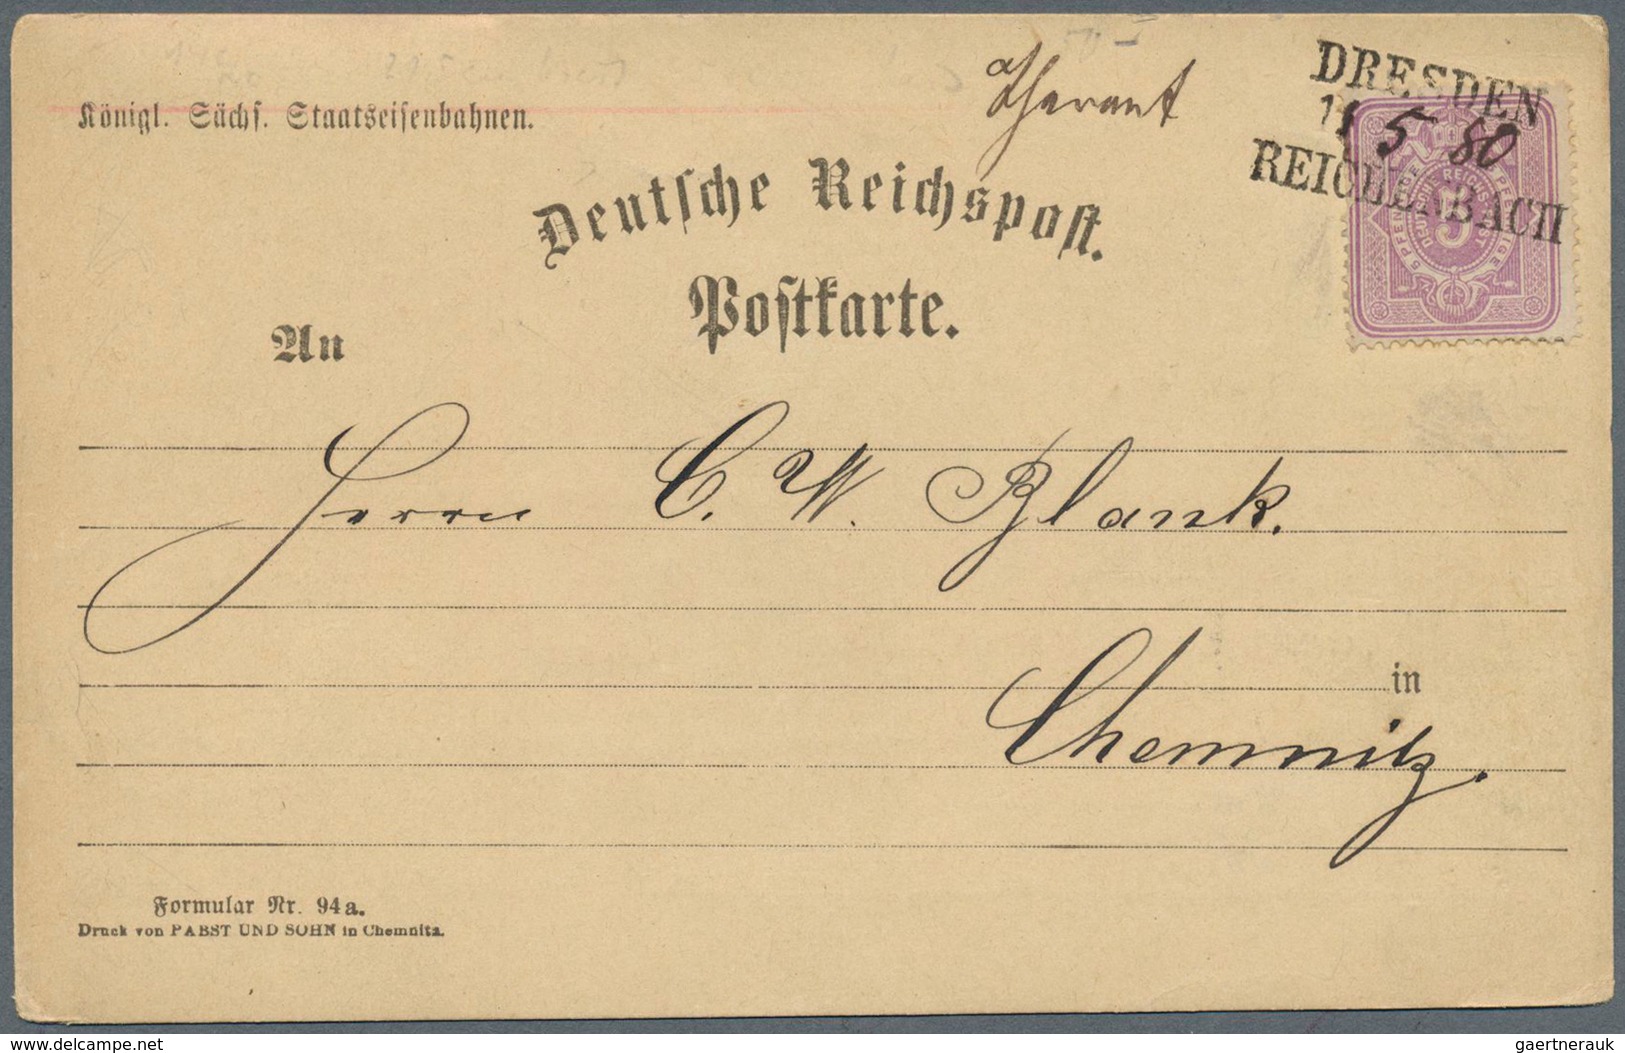 Königl. Sächs. Staatseisenbahnen.
Tharant
DRESDEN
5 80
REICHENBACH
Deutsche Reichspost.
Postkarte.
An
Herrn C. W. Blank.
in
Chemnitz.
Formular Nr. 94a.
Druck von PABST UND SOHN in Chemnitz.
DEUTSCHE REICHS-POST
5 PFENNIGE
5
www.delcampe.net
gaertnerauk